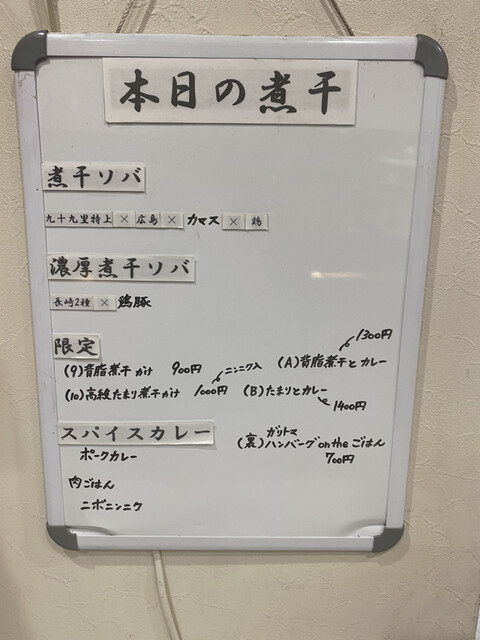 本日の煮干
煮干ソバ
九十九里特上×広島×カマス×鶏
濃厚煮干ソバ
長崎2種×鶏豚
限定
1300円
(9)背脂煮干かけ 900円 ニンニク入 (A)背脂煮干とカレー
(10)高級たまり煮干かけ 1000円 (B)たまりとカレー
1400円
スパイスカレー
ポークカレー
ガリトマ
(裏)ハンバーグon theごはん
700円
肉ごはん
ニボニンニク